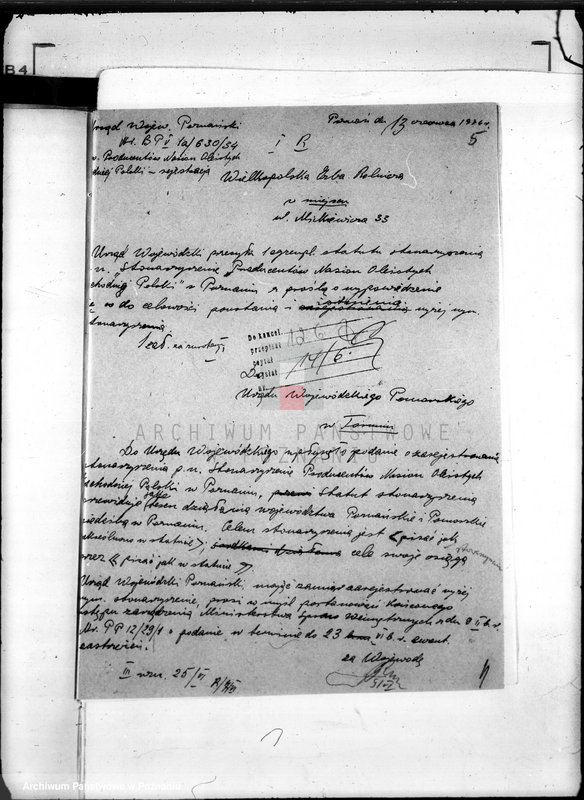 B4
Urząd Wojew. Poznański
Poznań dn. 13 czerwca 1936 r.
Nr. BPV 1a/630/34
5
I R
Producentów Nasion Oleistych
Polski – rejestracja
Wielkopolska Izba Rolnicza
w miejscu
ul. Mickiewicza 33
Urząd Wojewódzki przesyła 1 egzempl. statutu stowarzyszenia
n. "Stowarzyszenie Producentów Nasion Oleistych
Zachodniej Polski" w Poznaniu z prośbą o wypowiedzenie
się co do celowości powstania i istnienia wyżej wym.
stowarzyszenia
1 zał. za zwrotem
Do kancel. 12.6
przepisał
czytał 14/6
wysłał
Do
Urzędu Wojewódzkiego Pomorskiego
w Toruniu
ARCHIWUM PAŃSTWOWE
Do Urzędu Wojewódzkiego wpłynęło podanie o zarejestrowanie
stowarzyszenia p.n. Stowarzyszenie Producentów Nasion Oleistych
Zachodniej Polski w Poznaniu, Statut stowarzyszenia
przewiduje jako teren działania województwa Poznańskie i Pomorskie
siedzibą w Poznaniu. Celem stowarzyszenia jest (pisać jak
w statucie); cele swoje osiąga
przez (pisać jak w statucie).
Urząd Wojewódzki Poznański mając zamiar zarejestrować wyżej
wym. stowarzyszenie, prosi w myśl postanowień końcowego
ustępu zarządzenia Ministerstwa Spraw Wewnętrznych z dn. 9 II b.r.
Nr. PP 12/29/1 o podanie w terminie do 23 VI b.r. ewent.
zastrzeżeń.
za Wojewodę
III wzn. 25/VI
Archiwum Państwowe w Poznaniu